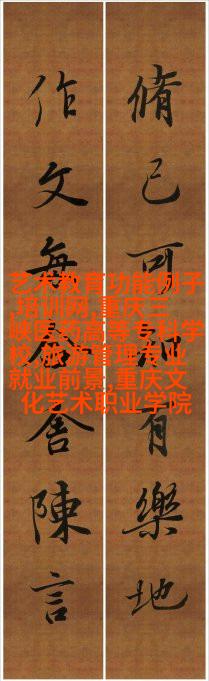 脩己可有樂地
作文無舍陳言
艺术教育功能例子
,培训网,重庆三
峡医药高等专科学
校,旅游管理专业
就业前景,重庆文
化艺术职业学院